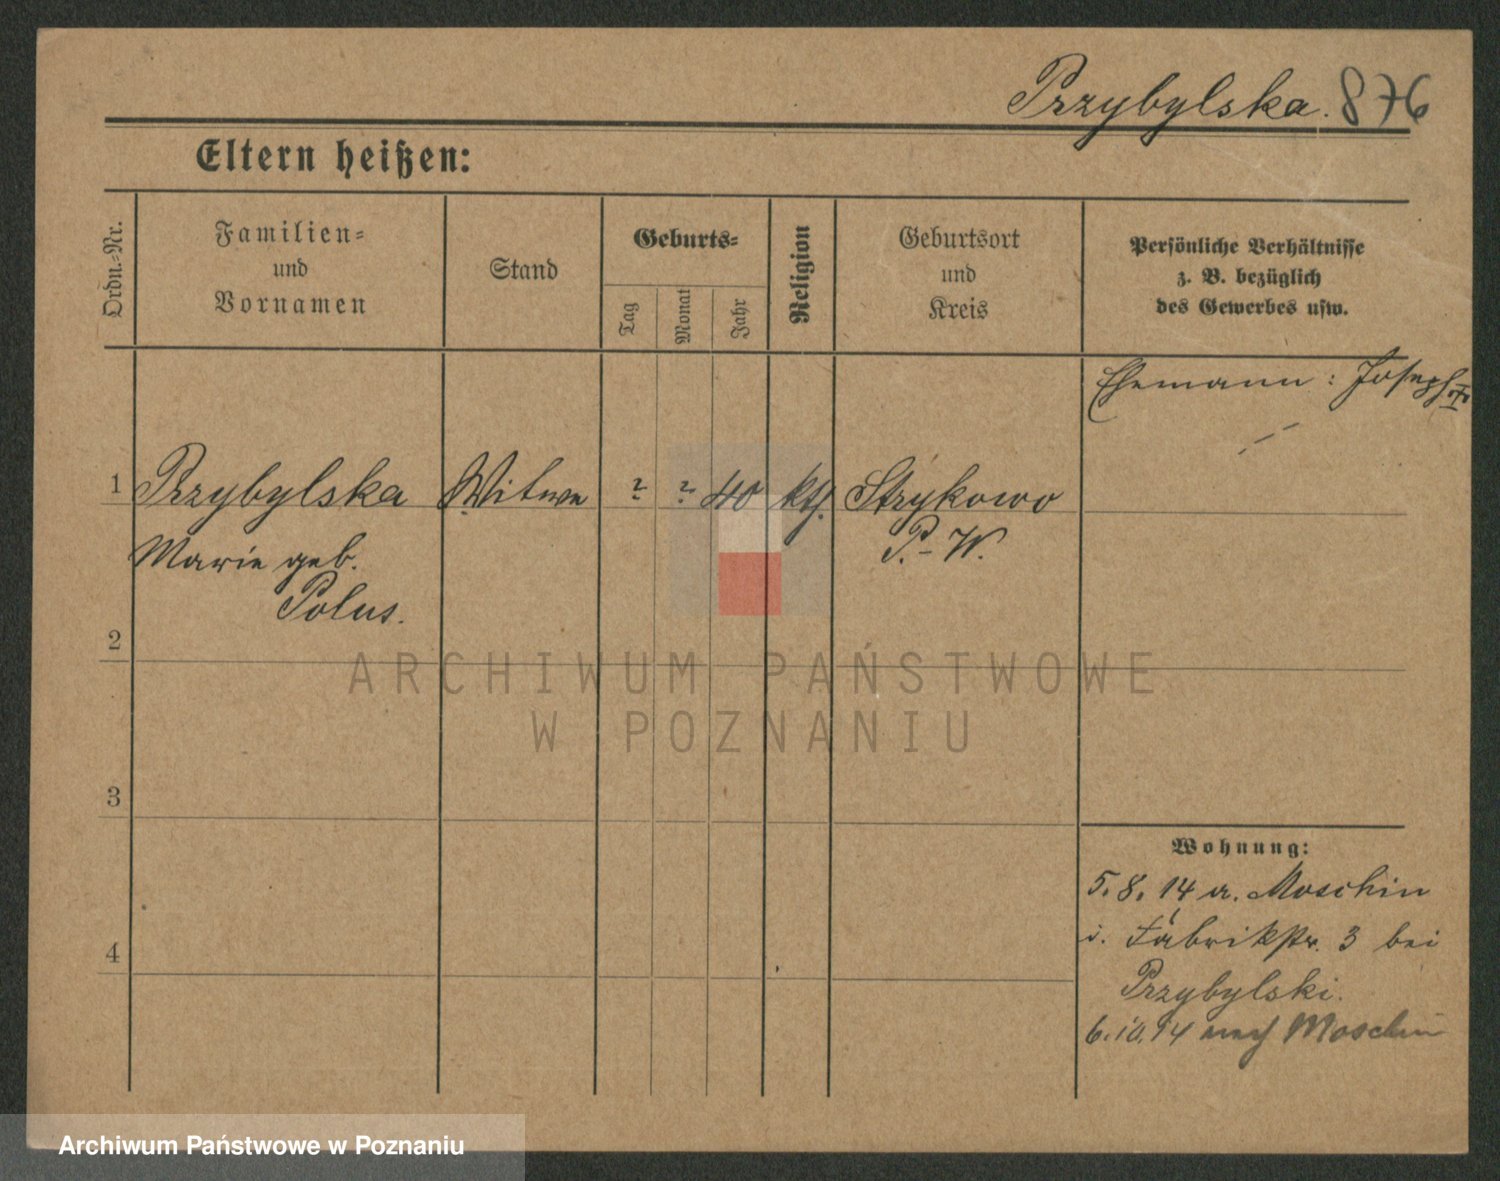 Przybylska. 876
Eltern heißen:
Ordn.-Nr.
Familien-
und
Vornamen
Stand
Geburts-
Tag
Monat
Jahr
Religion
Geburtsort
und
Kreis
Persönliche Verhältnisse
z. B. bezüglich
des Gewerbes usw.
Ehemann: Joseph
1 Przybylska Witwe ? ? 40 kth. Strykowo
Marie geb. P.-W.
Polus.
2
3
4
ARCHIWUM PAŃSTWOWE
W POZNANIU
Wohnung:
5. 8. 14 a. Moschin
i. Fabrikstr. 3 bei
Przybylski.
6.10.14 nach Moschin
Archiwum Państwowe w Poznaniu